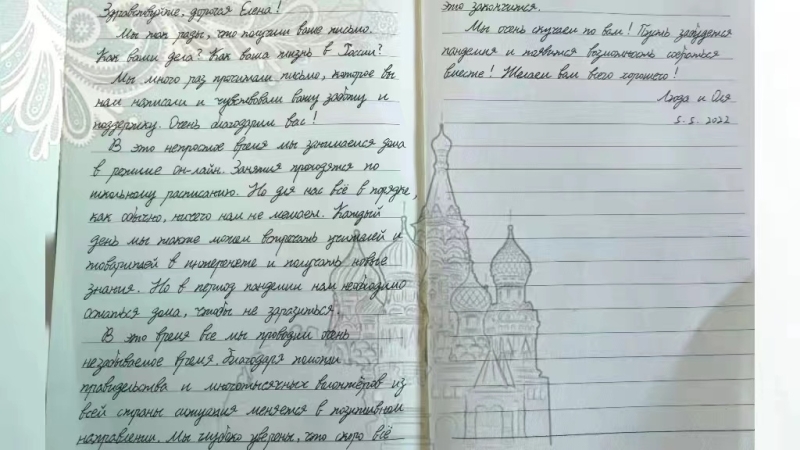 Здравствуйте, дорогая Елена!
Мы так рады, что получили ваше письмо.
Как ваши дела? Как ваша жизнь в России?
Мы много раз прочитали письмо, которое вы
нам написали и чувствовали вашу заботу и
поддержку. Очень благодарим вас!
В это непростое время мы занимаемся дома
в режиме он-лайн. Занятия проходятся по
школьному расписанию. Но для нас всё в порядке,
как обычно, ничего нам не мешает. Каждый
день мы также можем встречать учителей и
товарищей в интернете и получать новые
знания. Но в период пандемии нам необходимо
остаться дома, чтобы не заразиться.
В это время все мы проводим очень
незабываемое время. благодаря помощи
правидельства и многотысячных волонтёров из
всей страны ситуация меняется в позитивном
направлении. Мы глубоко уверены, что скоро всё
это закончится.
Мы очень скучаем по вам! Пусть забудется
пандемия и появится возможность собраться
вместе! Желаем вам всего хорошего!
и Оля
5.5.2022